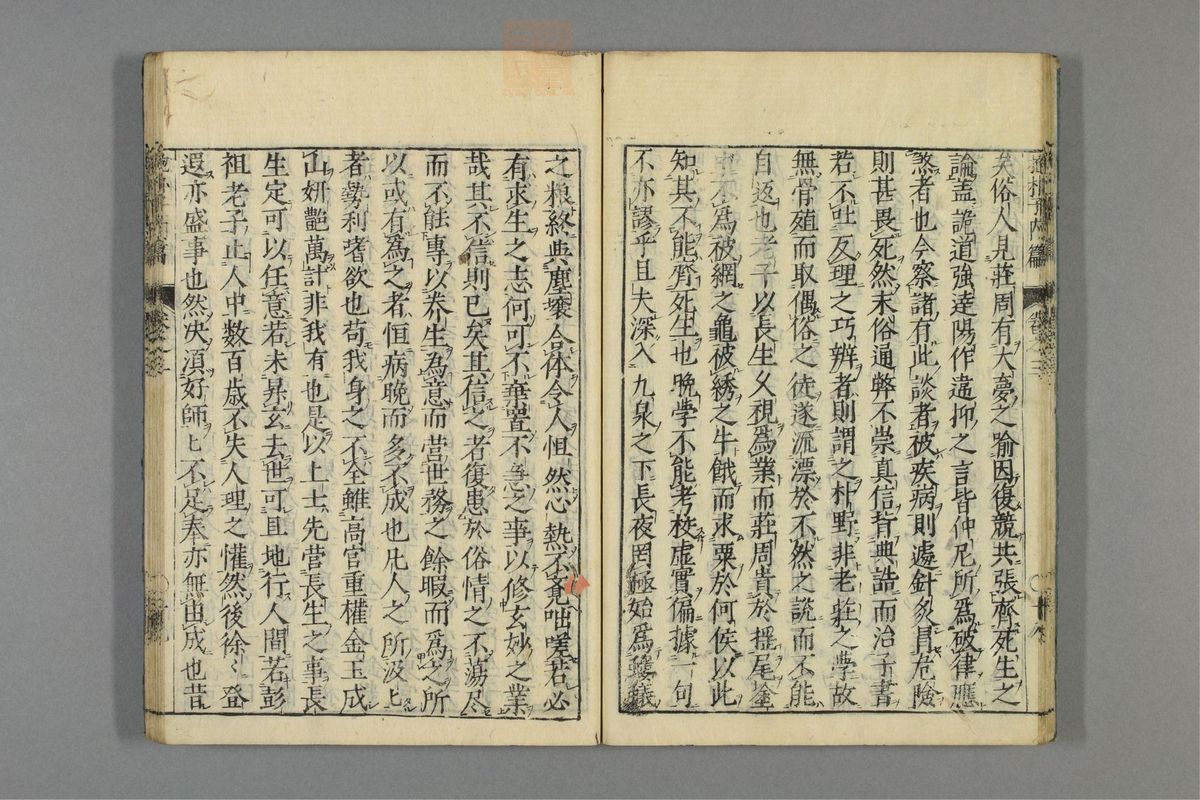 矣俗人見莊周有大夢之喻因復競共張齊死生之
論蓋詭道強達陽作違抑之言皆仲尼所爲破律應
煞者也今察諸有此談者被疾病則遽針灸冐危險
則甚畏死然末俗通弊不崇真信背典誥而治子書
若不吐反理之巧辨者則謂之朴野非老莊之學故
無骨殖而取偶俗之徒遂流漂於不然之説而不能
自返也老子以長生乆視爲業而莊周貴於揺尾塗
中不爲被網之龜被綉之牛餓而求粟於何侯以此
知其不能齊死生也晩學不能考校虚實偏據一句
不亦謬乎且夫深入九泉之下長夜罔極始爲螻蟻
之粮終與塵壤合体令人怛然心熱不覺咄嗟若必
有求生之志何可不棄置不急之事以修玄妙之業
哉其不信則已矣其信之者復患於俗情之不蕩尽
而不能專以养生為意而营世務之餘暇而爲之所
以或有爲之者恒病晩而多不成也凡人之所汲〻
者勢利嗜欲也苟我身之不全雖高官重權金玉成
山妍艶萬計非我有也是以上士先营長生之事長
生定可以任意若未昇玄去世可且地行人間若彭
祖老子止人中数百歳不失人理之懽然後徐〻登
遐亦盛事也然决須好師〻不足奉亦無由成也昔
抱朴子内篇
卷之三